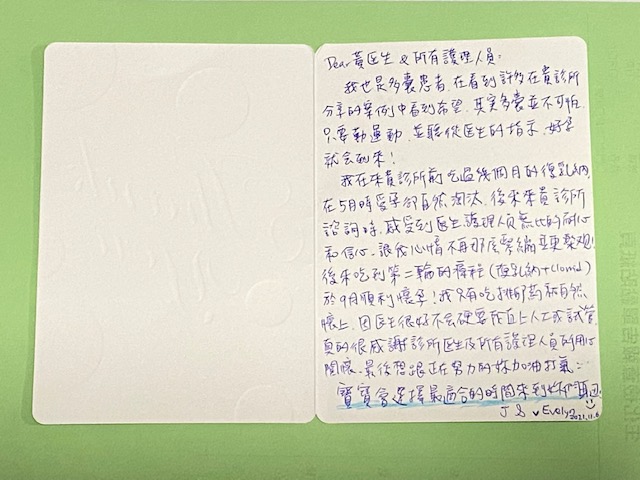 Dear 黃医生 & 所有護理人員：
我也是多囊患者，在看到許多在貴診所
分享的案例中看到希望，其實多囊並不可怕
只要勤運動，並聽從医生的指示，好孕
就会到來！
我在來貴診所前吃過幾個月的復乳納，
在5月時受孕卻自然淘汰，後來來貴診所
諮詢時，感受到医生、護理人員無比的耐心
和信心，讓我心情不再那麼緊繃並更樂觀！
後來吃到第二輪的療程（復乳納+Clomid）
於9月順利懷孕！我只有吃排卵藥就自然
懷上，因医生很好不会硬要我直上人工或試管
真的很感謝診所医生及所有護理人員的用心
關懷，最後想跟正在努力的妳加油打氣：
寶寶會選擇最適合的時間來到妳們身邊
J & ♥ Evelyn
2021.11.6